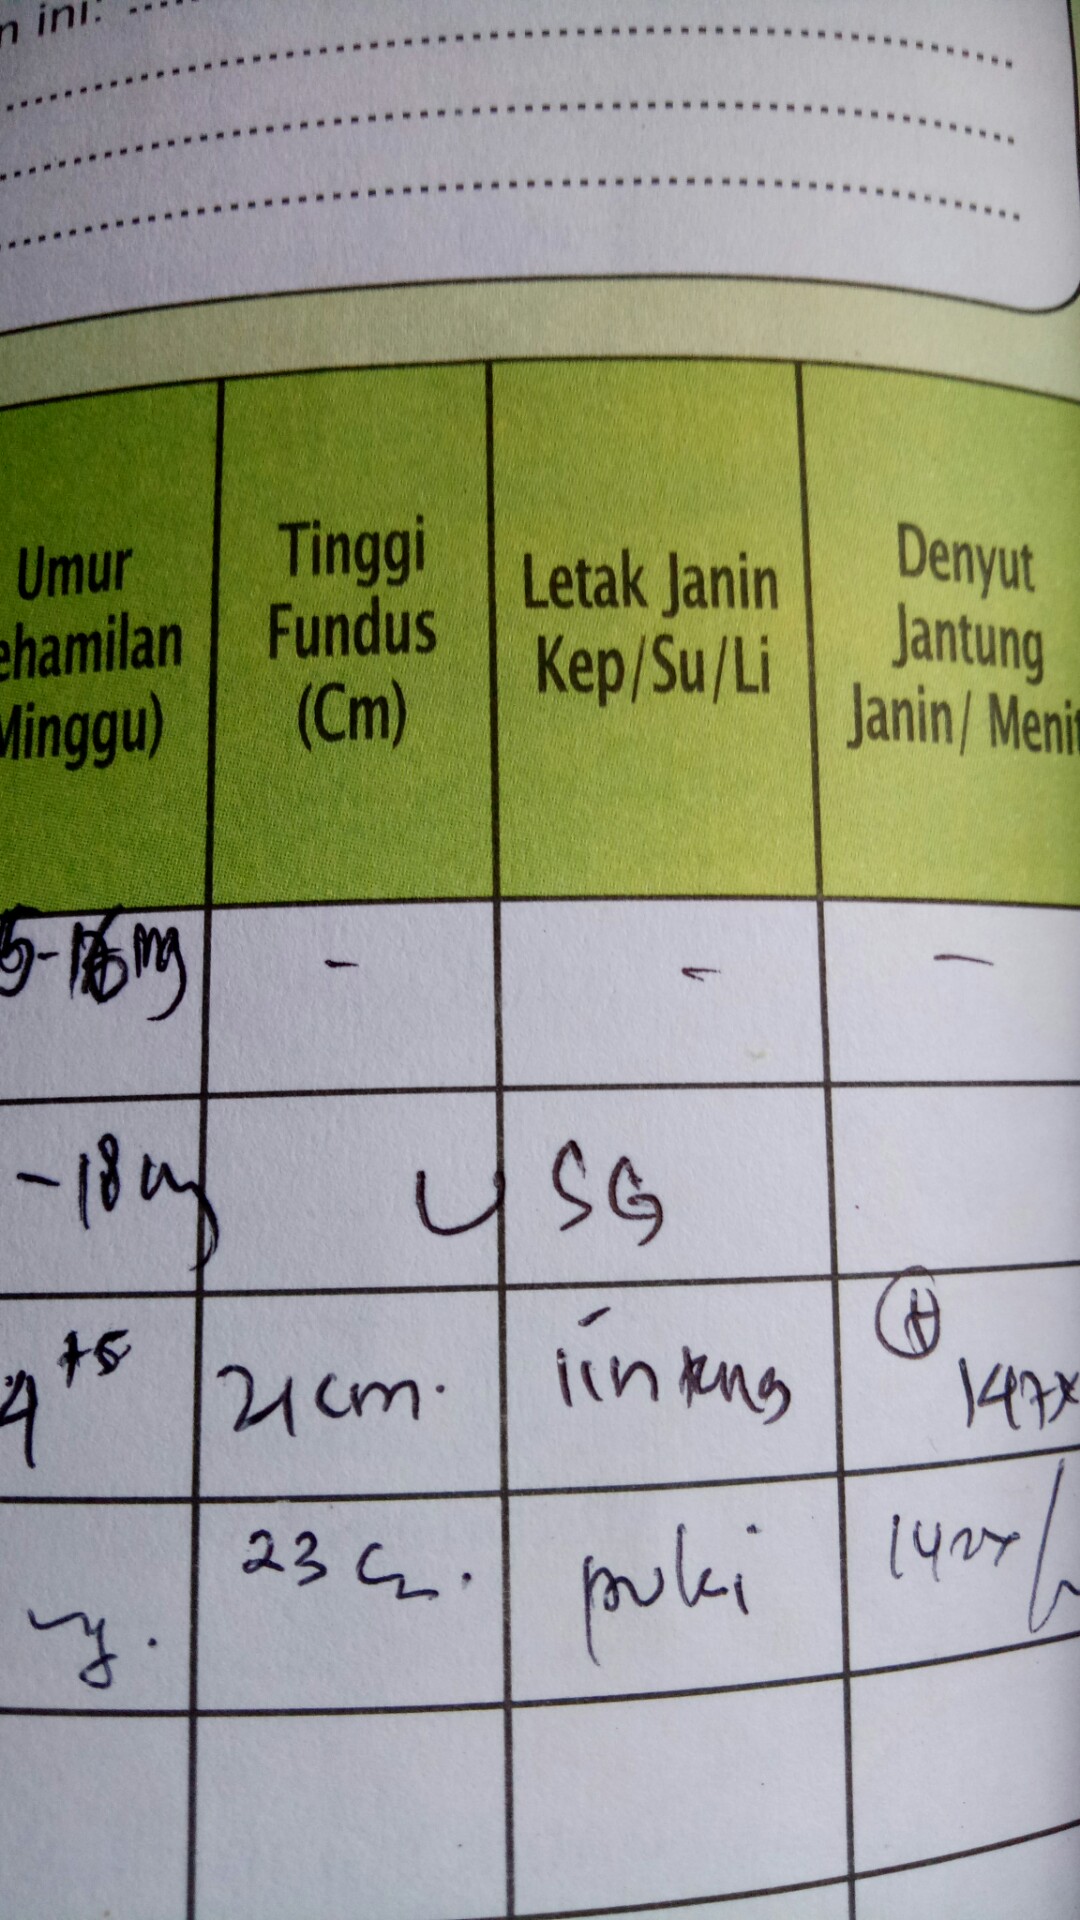 n ini:
Umur
ehamilan
Minggu)
Tinggi
Fundus
(Cm)
Letak Janin
Kep/Su/Li
Denyut
Jantung
Janin/ Menit
5-16 mg
-
-
-
-18
USG
4 +5
21 cm.
+
147x
23 cm.
puki
142x/